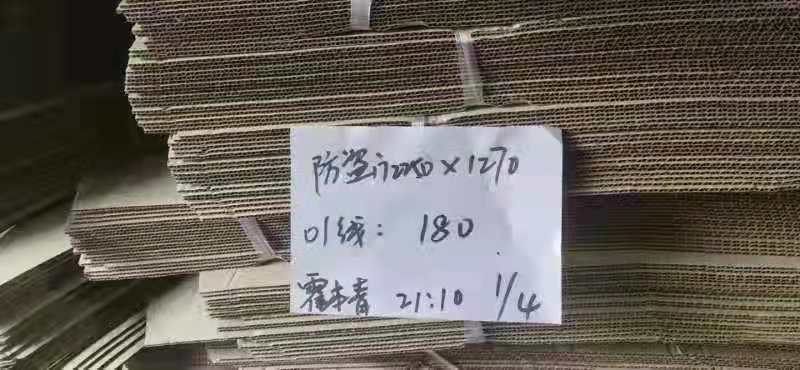 防盗门2250×1270
01线: 180
霍本青 21:10 1/4